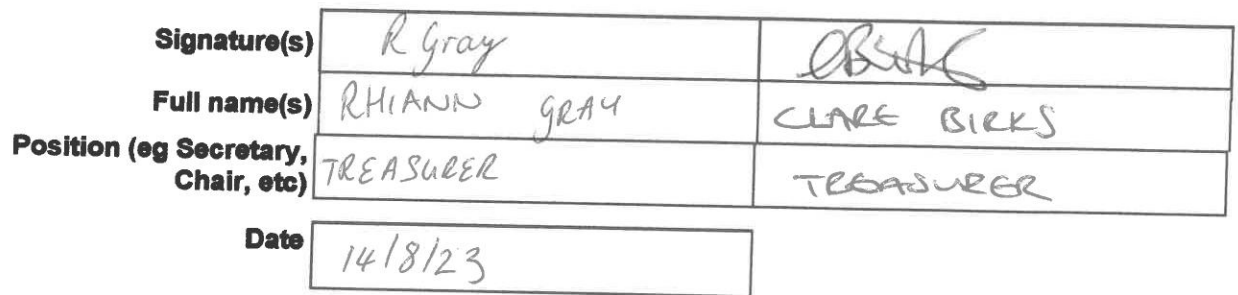 Signature(s) R Gray CBirks
Full name(s) RHIANN GRAY CLARE BIRKS
Position (eg Secretary,
Chair, etc) TREASURER TREASURER
Date 14/8/23